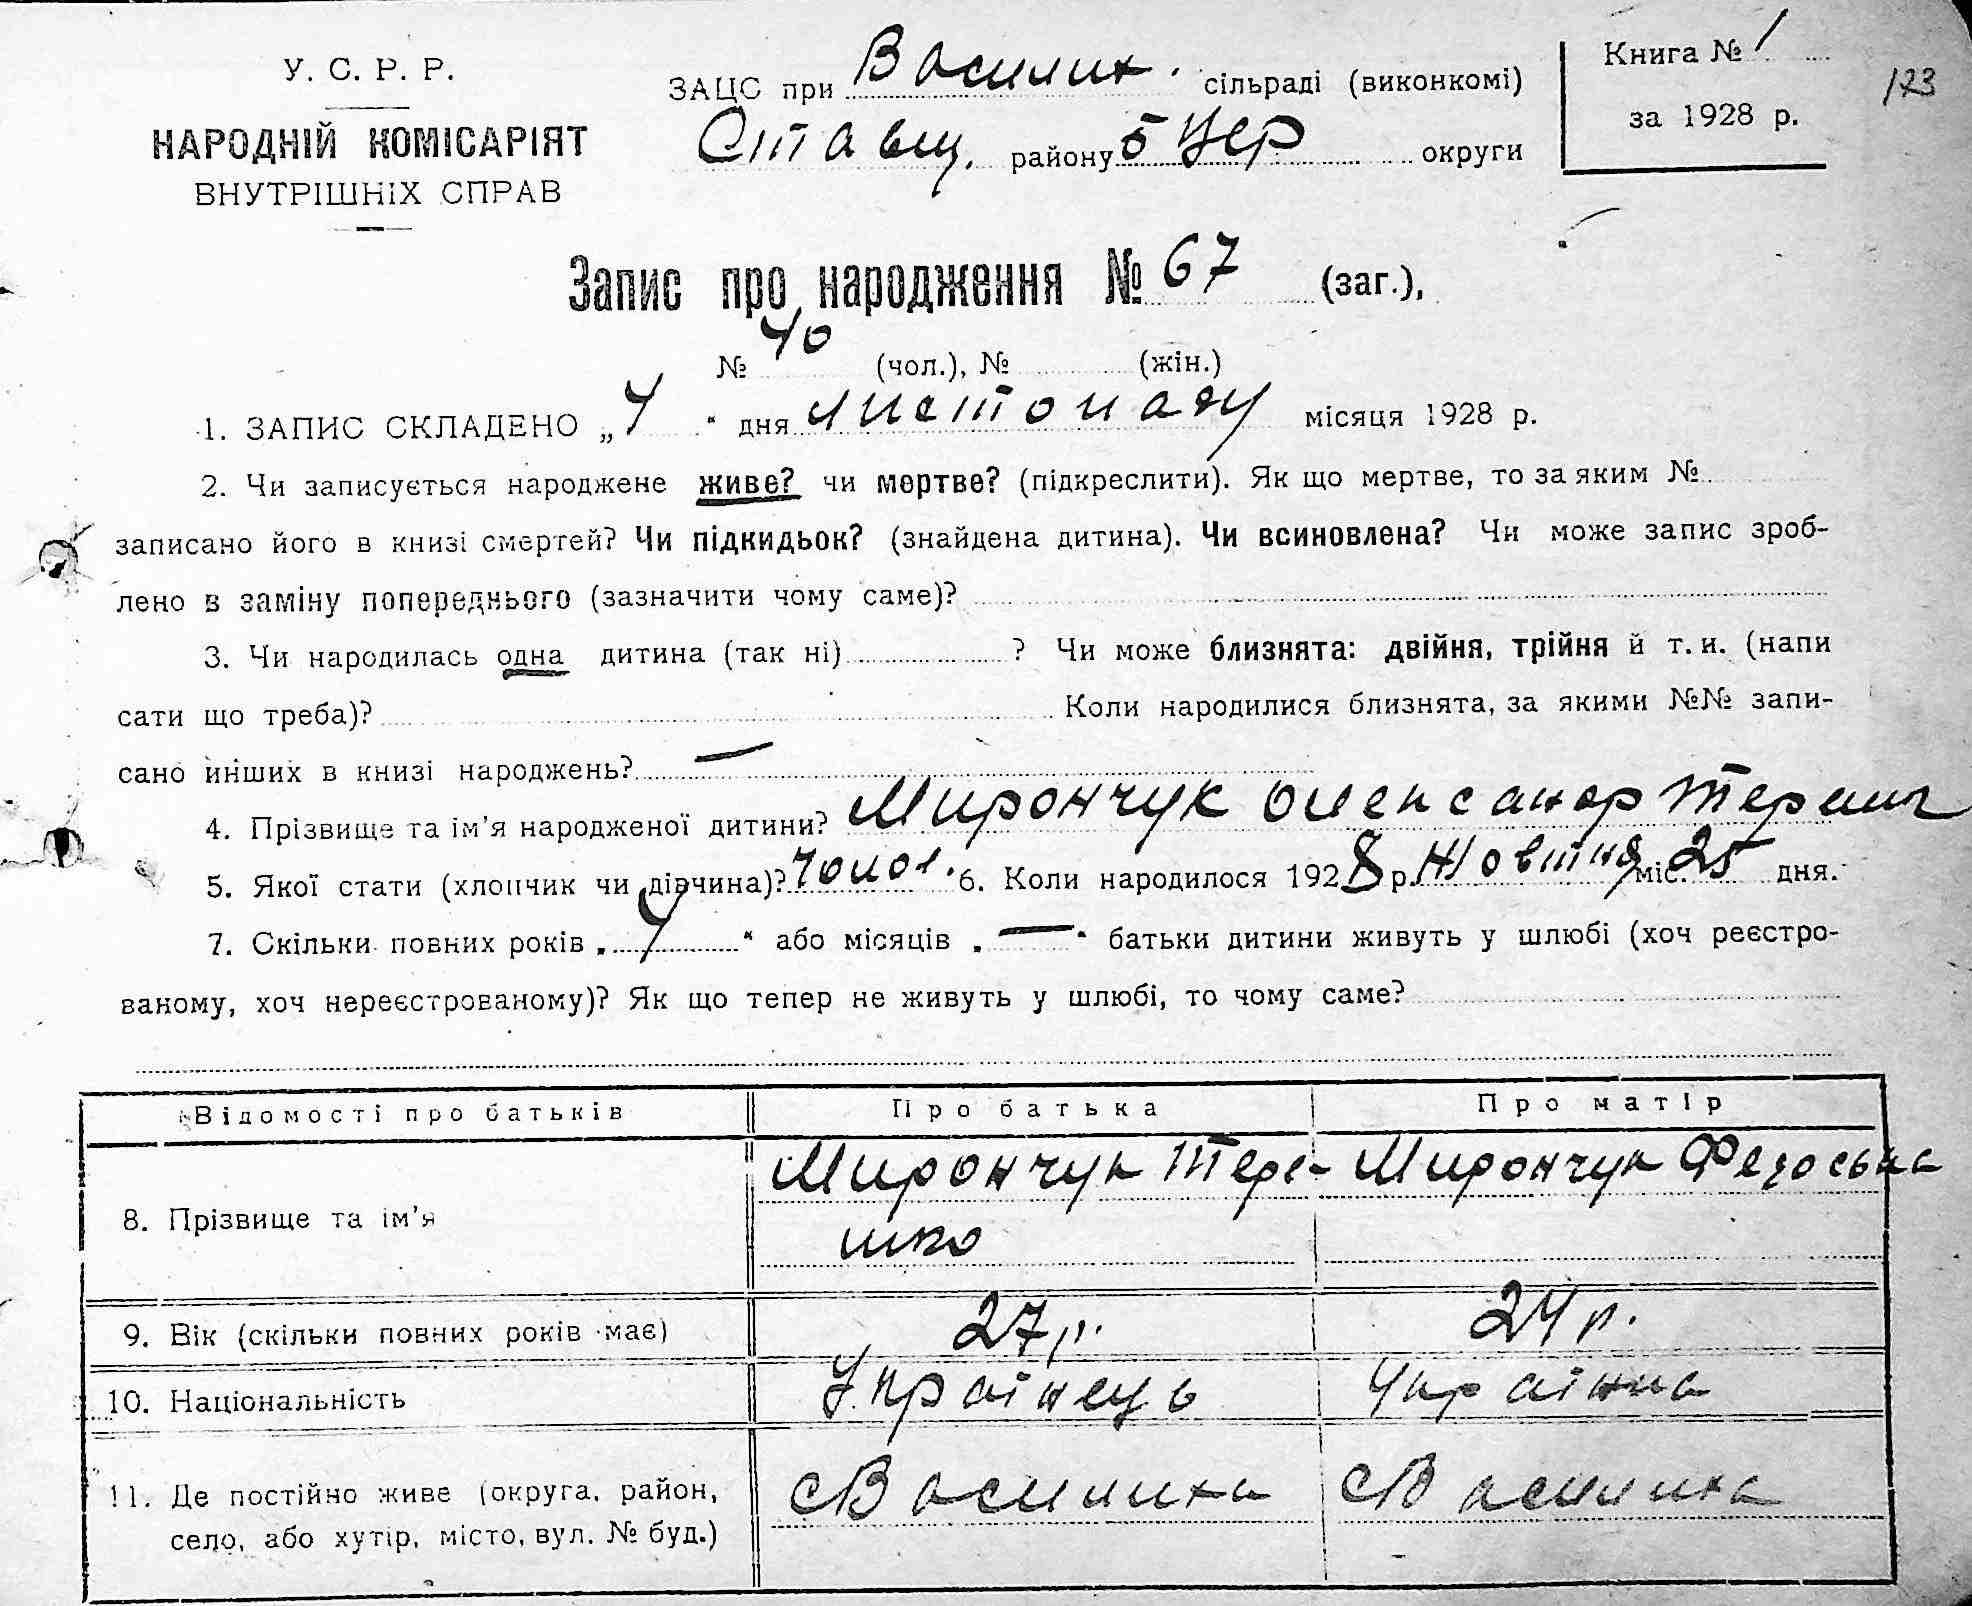 У. С. Р. Р.
НАРОДНІЙ КОМІСАРІЯТ
ВНУТРІШНІХ СПРАВ
ЗАЦС при Василих. сільраді (виконкомі)
Ставищ. району БЦер округи
Книга № 1
за 1928 р.
123
Запис про народження № 67 (заг.),
№ 40 (чол.), № (жін.)
1. ЗАПИС СКЛАДЕНО „4“ дня листопаду місяця 1928 р.
2. Чи записується народжене живе? чи мертве? (підкреслити). Як що мертве, то за яким №
записано його в книзі смертей? Чи підкидьок? (знайдена дитина). Чи всиновлена? Чи може запис зроб-
лено в заміну попереднього (зазначити чому саме)?
3. Чи народилась одна дитина (так ні) ? Чи може близнята: двійня, трійня й т. и. (напи
сати що треба)? Коли народилися близнята, за якими №№ запи-
сано инших в книзі народжень? —
4. Прізвище та ім'я народженої дитини? Мирончук Олександр
5. Якої стати (хлопчик чи дівчина)? Чолов. 6. Коли народилося 1928 р. Жовтня міс. 25 дня.
7. Скільки повних років „4“ або місяців „—“ батьки дитини живуть у шлюбі (хоч реєстро-
ваному, хоч нереєстрованому)? Як що тепер не живуть у шлюбі, то чому саме?
Відомості про батьків Про батька Про матір
8. Прізвище та ім'я Мирончук Тере- Мирончук Федоська
шко
9. Вік (скільки повних років має) 27 р. 24 р.
10. Національність Українець Українка
11. Де постійно живе (округа, район, с Василиха с Василиха
село, або хутір, місто, вул. № буд.)